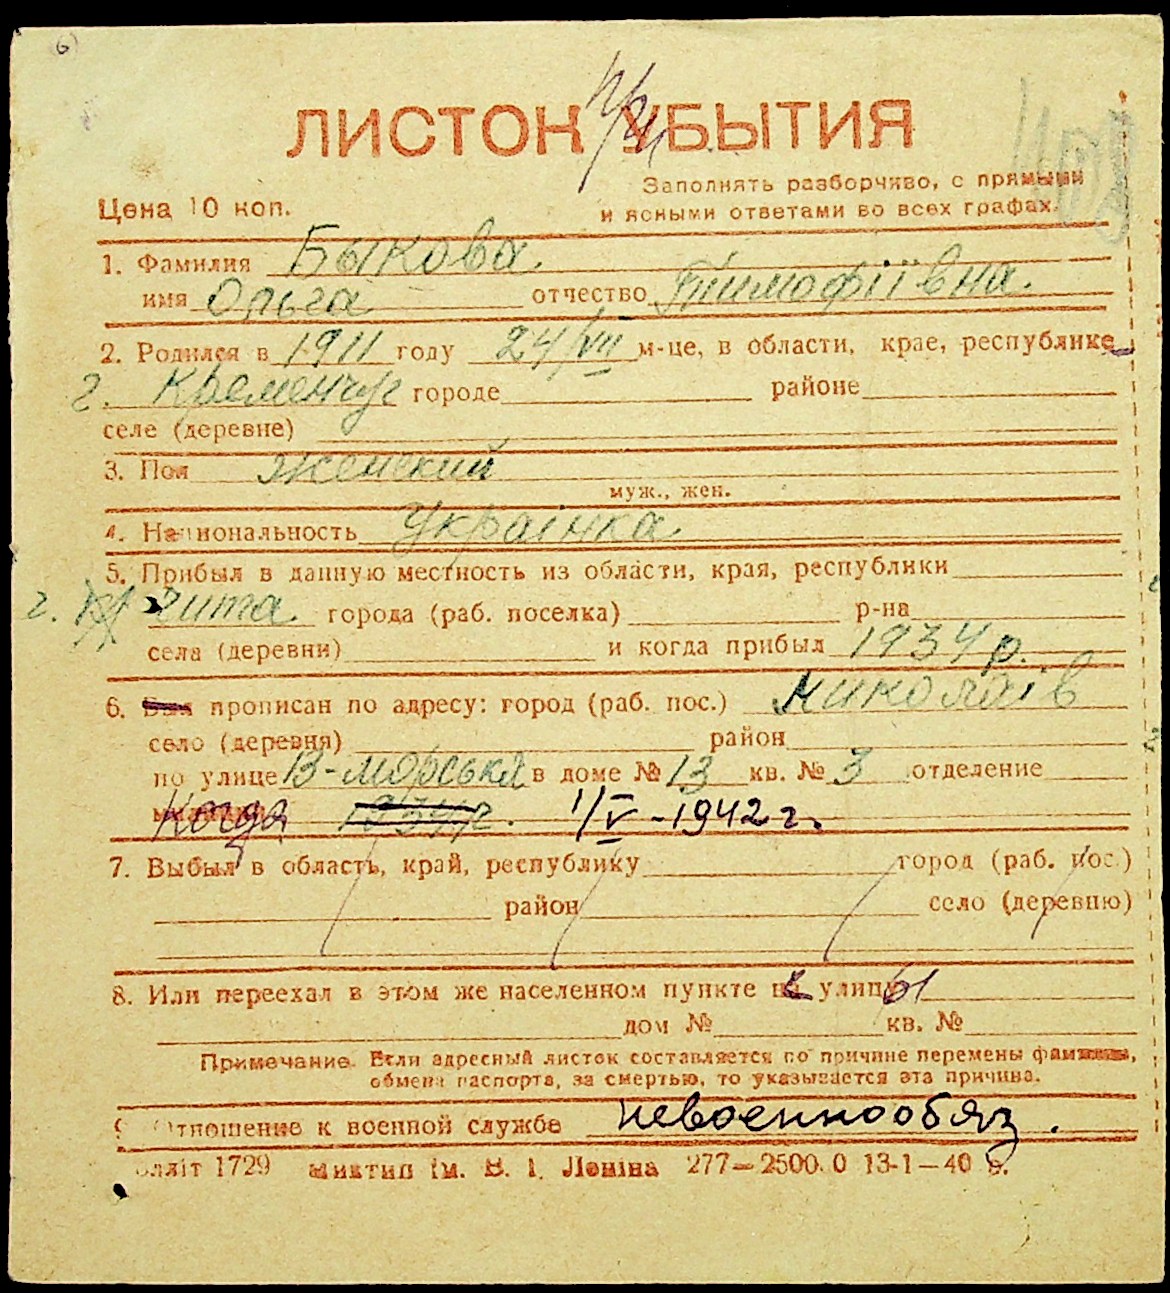 6)
ЛИСТОК УБЫТИЯ
при
Заполнять разборчиво, с прямыми
Цена 10 коп. и ясными ответами во всех графах.
1. Фамилия Быкова
имя Ольга отчество Тимофіївна.
2. Родился в 1911 году 24/VII м-це, в области, крае, республике
г. Кременчуг городе районе
селе (деревне)
3. Пол женский
муж., жен.
4. Национальность Українка
5. Прибыл в данную местность из области, края, республики
г. Чита. города (раб. поселка) р-на
села (деревни) и когда прибыл 1934 р.
6. Был прописан по адресу: город (раб. пос.) Николаів
село (деревня) район
по улице В-морська в доме № 13 кв. № 3 отделение
Когда 1934 г. 1/V-1942 г.
7. Выбыл в область, край, республику город (раб. пос.)
район село (деревню)
8. Или переехал в этом же населенном пункте с улицы
дом № кв. №
Примечание. Если адресный листок составляется по причине перемены фамилии,
обмена паспорта, за смертью, то указывается эта причина.
9. Отношение к военной службе невоеннообяз.
1729 Миктип ім. В. І. Леніна 277—2500.0 13-1—40 р.